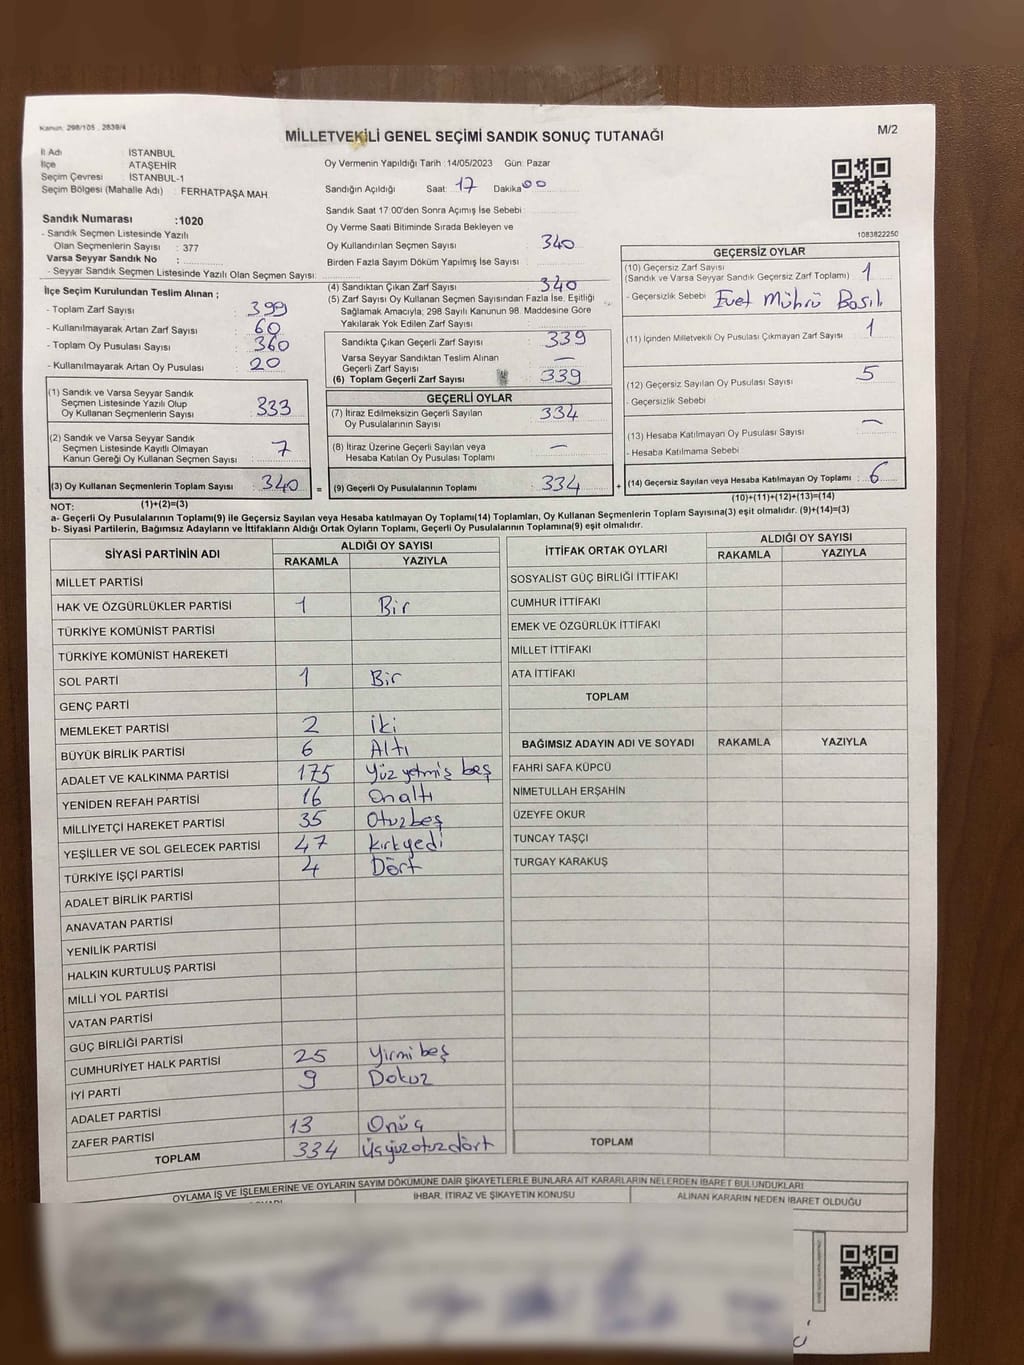 Kanun: 298/105 , 2839/4
MİLLETVEKİLİ GENEL SEÇİMİ SANDIK SONUÇ TUTANAĞI
M/2
İl Adı : İSTANBUL
İlçe : ATAŞEHİR
Seçim Çevresi : İSTANBUL-1
Seçim Bölgesi (Mahalle Adı) : FERHATPAŞA MAH
Sandık Numarası :1020
- Sandık Seçmen Listesinde Yazılı
Olan Seçmenlerin Sayısı : 377
Varsa Seyyar Sandık No :
- Seyyar Sandık Seçmen Listesinde Yazılı Olan Seçmen Sayısı:
Oy Vermenin Yapıldığı Tarih :14/05/2023 Gün: Pazar
Sandığın Açıldığı Saat: 17 Dakika 00
Sandık Saat 17 00'den Sonra Açımış İse Sebebi :
Oy Verme Saati Bitiminde Sırada Bekleyen ve
Oy Kullandırılan Seçmen Sayısı : 340
Birden Fazla Sayım Döküm Yapılmış İse Sayısı :
1083822250
İlçe Seçim Kurulundan Teslim Alınan ;
- Toplam Zarf Sayısı : 399
- Kullanılmayarak Artan Zarf Sayısı : 60
- Toplam Oy Pusulası Sayısı : 360
- Kullanılmayarak Artan Oy Pusulası : 20
(1) Sandık ve Varsa Seyyar Sandık
Seçmen Listesinde Yazılı Olup
Oy Kullanan Seçmenlerin Sayısı : 333
(2) Sandık ve Varsa Seyyar Sandık
Seçmen Listesinde Kayıtlı Olmayan
Kanun Gereği Oy Kullanan Seçmen Sayısı : 7
(3) Oy Kullanan Seçmenlerin Toplam Sayısı : 340 =
(1)+(2)=(3)
(4) Sandıktan Çıkan Zarf Sayısı : 340
(5) Zarf Sayısı Oy Kullanan Seçmen Sayısından Fazla İse, Eşitliği
Sağlamak Amacıyla; 298 Sayılı Kanunun 98. Maddesine Göre
Yakılarak Yok Edilen Zarf Sayısı :
Sandıkta Çıkan Geçerli Zarf Sayısı : 339
Varsa Seyyar Sandıktan Teslim Alınan
Geçerli Zarf Sayısı : —
(6) Toplam Geçerli Zarf Sayısı : 339
GEÇERLİ OYLAR
(7) İtiraz Edilmeksizin Geçerli Sayılan
Oy Pusulalarının Sayısı : 334
(8) İtiraz Üzerine Geçerli Sayılan veya
Hesaba Katılan Oy Pusulası Toplamı : —
(9) Geçerli Oy Pusulalarının Toplamı : 334 +
GEÇERSİZ OYLAR
(10) Geçersiz Zarf Sayısı
(Sandık ve Varsa Seyyar Sandık Geçersiz Zarf Toplamı) : 1
- Geçersizlik Sebebi : Evet Mührü Basılı
(11) İçinden Milletvekili Oy Pusulası Çıkmayan Zarf Sayısı : 1
(12) Geçersiz Sayılan Oy Pusulası Sayısı : 5
- Geçersizlik Sebebi
(13) Hesaba Katılmayan Oy Pusulası Sayısı : —
- Hesaba Katılmama Sebebi
(14) Geçersiz Sayılan veya Hesaba Katılmayan Oy Toplamı : 6
(10)+(11)+(12)+(13)=(14)
NOT:
a- Geçerli Oy Pusulalarının Toplamı(9) ile Geçersiz Sayılan veya Hesaba katılmayan Oy Toplamı(14) Toplamları, Oy Kullanan Seçmenlerin Toplam Sayısına(3) eşit olmalıdır. (9)+(14)=(3)
b- Siyasi Partilerin, Bağımsız Adayların ve İttifakların Aldığı Ortak Oyların Toplamı, Geçerli Oy Pusulalarının Toplamına(9) eşit olmalıdır.
SİYASİ PARTİNİN ADI ALDIĞI OY SAYISI
RAKAMLA YAZIYLA
MİLLET PARTİSİ
HAK VE ÖZGÜRLÜKLER PARTİSİ 1 Bir
TÜRKİYE KOMÜNİST PARTİSİ
TÜRKİYE KOMÜNİST HAREKETİ
SOL PARTİ 1 Bir
GENÇ PARTİ
MEMLEKET PARTİSİ 2 iki
BÜYÜK BİRLİK PARTİSİ 6 Altı
ADALET VE KALKINMA PARTİSİ 175 Yüz yetmiş beş
YENİDEN REFAH PARTİSİ 16 Onaltı
MİLLİYETÇİ HAREKET PARTİSİ 35 Otuzbeş
YEŞİLLER VE SOL GELECEK PARTİSİ 47 Kırkyedi
TÜRKİYE İŞÇİ PARTİSİ 4 Dört
ADALET BİRLİK PARTİSİ
ANAVATAN PARTİSİ
YENİLİK PARTİSİ
HALKIN KURTULUŞ PARTİSİ
MİLLİ YOL PARTİSİ
VATAN PARTİSİ
GÜÇ BİRLİĞİ PARTİSİ
CUMHURİYET HALK PARTİSİ 25 Yirmi beş
İYİ PARTİ 9 Dokuz
ADALET PARTİSİ
ZAFER PARTİSİ 13 Onüç
TOPLAM 334 Üçyüzotuzdört
İTTİFAK ORTAK OYLARI ALDIĞI OY SAYISI
RAKAMLA YAZIYLA
SOSYALİST GÜÇ BİRLİĞİ İTTİFAKI
CUMHUR İTTİFAKI
EMEK VE ÖZGÜRLÜK İTTİFAKI
MİLLET İTTİFAKI
ATA İTTİFAKI
TOPLAM
BAĞIMSIZ ADAYIN ADI VE SOYADI RAKAMLA YAZIYLA
FAHRİ SAFA KÜPCÜ
NİMETULLAH ERŞAHİN
ÜZEYFE OKUR
TUNCAY TAŞÇI
TURGAY KARAKUŞ
TOPLAM
OYLAMA İŞ VE İŞLEMLERİNE VE OYLARIN SAYIM DÖKÜMÜNE DAİR ŞİKAYETLERLE BUNLARA AİT KARARLARIN NELERDEN İBARET BULUNDUKLARI
İHBAR, İTİRAZ VE ŞİKAYETİN KONUSU ALINAN KARARIN NEDEN İBARET OLDUĞU